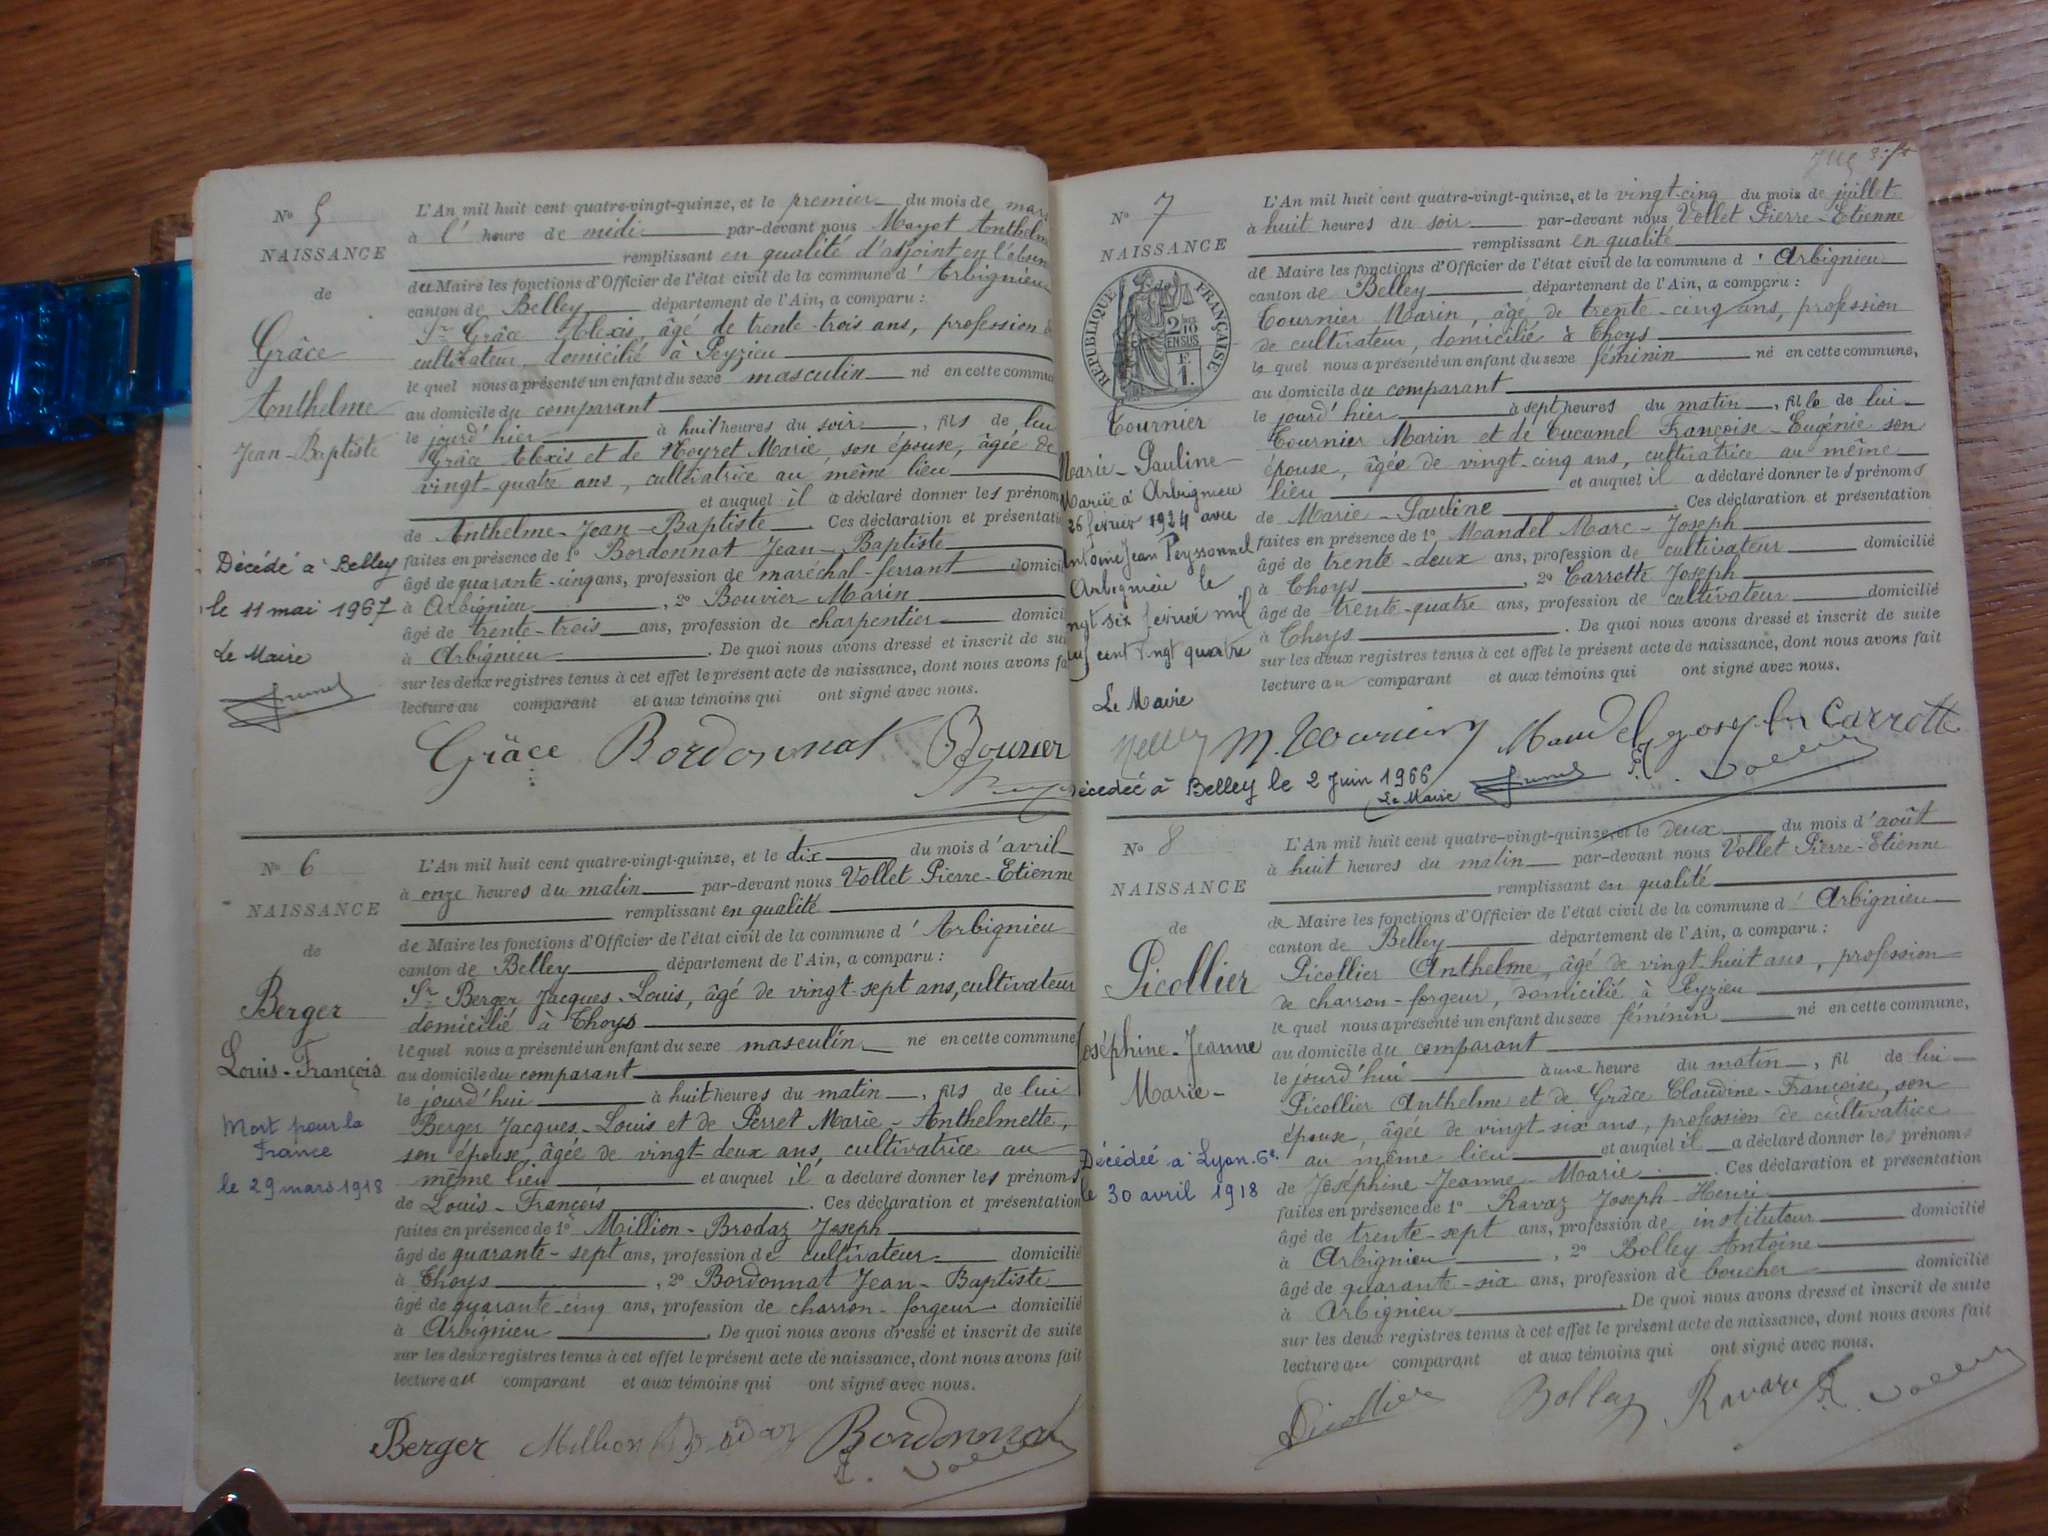 N° 5
NAISSANCE
de
Grâce
Anthelme
Jean-Baptiste
Décédé à Belley
le 11 mai 1967
Le Maire
L'An mil huit cent quatre-vingt-quinze, et le premier du mois de mars
à l' heure de midi par-devant nous Mayot Anthelm
remplissant en qualité d'adjoint en l'absen
du Maire les fonctions d'Officier de l'état civil de la commune d' Arbignieu
canton de Belley département de l'Ain, a comparu :
Sr Grâce Alexis, âgé de trente-trois ans, profession
cultivateur, domicilié à Peyzieu
le quel nous a présenté un enfant du sexe masculin né en cette commune
au domicile du comparant
le jourd'hier à huit heures du soir, fils de lui
Grâce Alexis et de Noyret Marie, son épouse, âgée de
vingt-quatre ans, cultivatrice au même lieu
et auquel il a déclaré donner les prénom
de Anthelme-Jean-Baptiste Ces déclaration et présentati
faites en présence de 1° Bordonnat Jean-Baptiste
âgé de quarante-cinq ans, profession de maréchal-ferrant domici
à Arbignieu, 2° Bouvier Marin
âgé de trente-trois ans, profession de charpentier domici
à Arbignieu. De quoi nous avons dressé et inscrit de sui
sur les deux registres tenus à cet effet le présent acte de naissance, dont nous avons fa
lecture au comparant et aux témoins qui ont signé avec nous.
Grâce Bordonnat Bouvier
N° 6
NAISSANCE
de
Berger
Louis-François
Mort pour la
France
le 29 mars 1918
L'An mil huit cent quatre-vingt-quinze, et le dix du mois d'avril
à onze heures du matin par-devant nous Vollet Pierre-Etienne
remplissant en qualité
de Maire les fonctions d'Officier de l'état civil de la commune d' Arbignieu
canton de Belley département de l'Ain, a comparu :
Sr Berger Jacques-Louis, âgé de vingt-sept ans, cultivateur
domicilié à Thoys
le quel nous a présenté un enfant du sexe masculin né en cette commune
au domicile du comparant
le jourd'hui à huit heures du matin, fils de lui
Berger Jacques-Louis et de Perret Marie-Anthelmette,
son épouse, âgée de vingt-deux ans, cultivatrice au
même lieu et auquel il a déclaré donner les prénoms
de Louis-François. Ces déclaration et présentation
faites en présence de 1° Million-Brodaz Joseph
âgé de quarante-sept ans, profession de cultivateur domicilié
à Thoys, 2° Bordonnat Jean-Baptiste
âgé de quarante-cinq ans, profession de charron-forgeur domicilié
à Arbignieu. De quoi nous avons dressé et inscrit de suite
sur les deux registres tenus à cet effet le présent acte de naissance, dont nous avons fait
lecture au comparant et aux témoins qui ont signé avec nous.
Berger Million Brodaz Bordonnat
N° 7
NAISSANCE
de
RÉPUBLIQUE FRANÇAISE
2/10
EN SUS
F.
1.
Tournier
Marie-Pauline
Mariée à Arbignieu
26 février 1924 avec
Antoine Jean Peyssonnel
Arbignieu le
ngt six février mil
uf cent vingt quatre
Le Maire
L'An mil huit cent quatre-vingt-quinze, et le vingt-cinq du mois de juillet
à huit heures du soir par-devant nous Vollet Pierre-Etienne
remplissant en qualité
de Maire les fonctions d'Officier de l'état civil de la commune d' Arbignieu
canton de Belley département de l'Ain, a comparu :
Tournier Marin, âgé de trente-cinq ans, profession
de cultivateur, domicilié à Thoys
le quel nous a présenté un enfant du sexe féminin né en cette commune,
au domicile du comparant
le jourd'hier à sept heures du matin, fille de lui
Tournier Marin et de Cucumel Françoise-Eugénie son
épouse, âgée de vingt-cinq ans, cultivatrice au même
lieu et auquel il a déclaré donner les prénoms
de Marie-Pauline. Ces déclaration et présentation
faites en présence de 1° Mandel Marc-Joseph
âgé de trente-deux ans, profession de cultivateur domicilié
à Thoys, 2° Carrotte Joseph
âgé de trente-quatre ans, profession de cultivateur domicilié
à Thoys. De quoi nous avons dressé et inscrit de suite
sur les deux registres tenus à cet effet le présent acte de naissance, dont nous avons fait
lecture au comparant et aux témoins qui ont signé avec nous.
M. Tournier Mandel joseph Carrotte
Décédée à Belley le 2 Juin 1966
Le Maire
N° 8
NAISSANCE
de
Picollier
Joséphine-Jeanne
Marie-
Décédée à Lyon. 6e.
le 30 avril 1918
L'An mil huit cent quatre-vingt-quinze, et le deux du mois d'août
à huit heures du matin par-devant nous Vollet Pierre-Etienne
remplissant en qualité
de Maire les fonctions d'Officier de l'état civil de la commune d' Arbignieu
canton de Belley département de l'Ain, a comparu :
Picollier Anthelme, âgé de vingt-huit ans, profession
de charron-forgeur, domicilié à Peyzieu
le quel nous a présenté un enfant du sexe féminin né en cette commune,
au domicile du comparant
le jourd'hui à une heure du matin, fil de lui
Picollier Anthelme et de Grâce Claudine-Françoise, son
épouse, âgée de vingt-six ans, profession de cultivatrice
au même lieu et auquel il a déclaré donner les prénoms
de Joséphine-Jeanne-Marie. Ces déclaration et présentation
faites en présence de 1° Ravaz Joseph-Henri
âgé de trente-sept ans, profession de instituteur domicilié
à Arbignieu, 2° Bolley Antoine
âgé de quarante-six ans, profession de boucher domicilié
à Arbignieu. De quoi nous avons dressé et inscrit de suite
sur les deux registres tenus à cet effet le présent acte de naissance, dont nous avons fait
lecture au comparant et aux témoins qui ont signé avec nous.
Picollier Bolley Ravaz